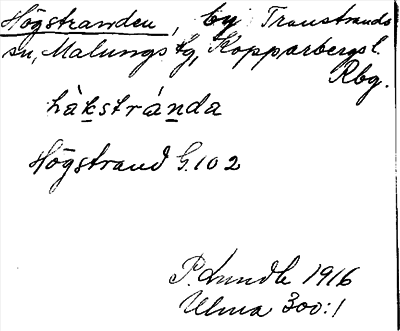 Högstranden, by Transtrands
sn, Malungs tg, Kopparbergs l.
Rbg.
hàkstránda
Högstrand G.102
P. Lundh 1916
Ulma 300:1